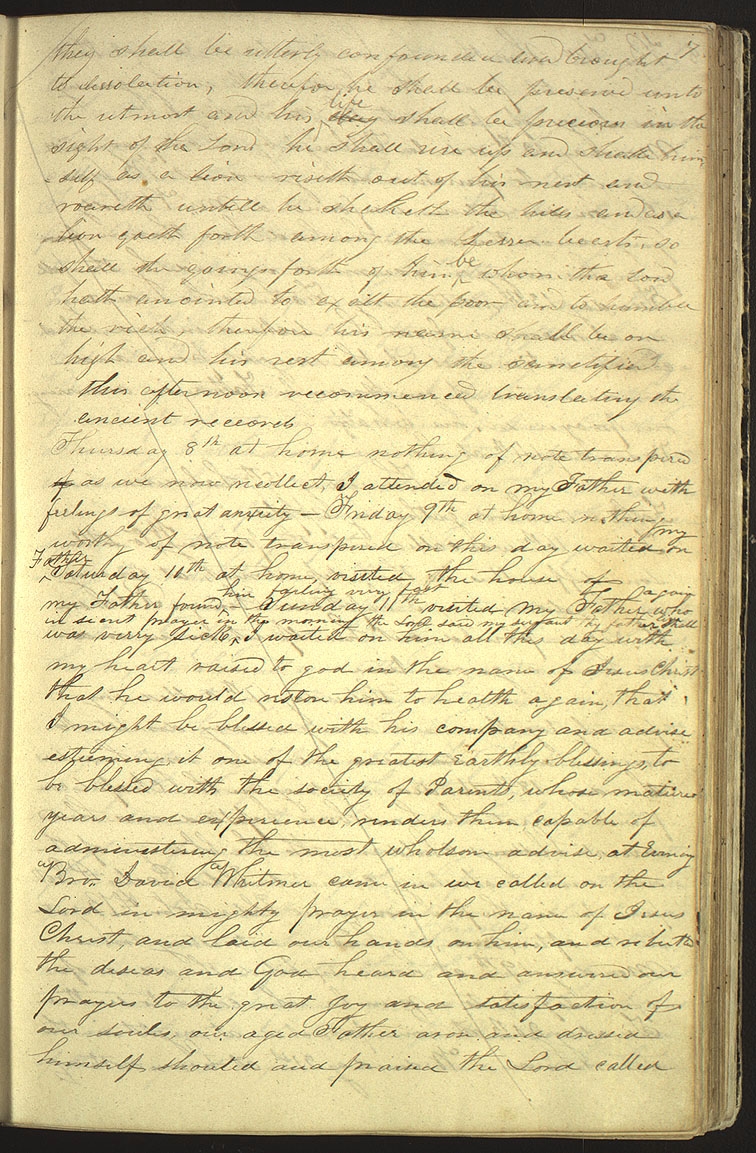 7
they shall be utterly confounded and brought
to dissolution, therefore he shall be preserved unto
the utmost and his life day shall be precious in the
sight of the Lord he shall rise up and shake him
self as a lion riseth out of his nest and
roareth untill he shaketh the hills and as a
lion goeth forth among the lesser beasts, so
shall the goings forth of him be whom the Lord
hath anointed to exalt the poor and to humble
the rich, therefore his name shall be on
high and his rest among the sanctified
this afternoon recommenced translating the
ancient reccords
Thursday 8th at home nothing of note transpired
as we now recollect, I attended on my Father with
feelings of great anxiety — Friday 9th at home nothing
worthy of note transpired on this day waited on my
Father
Saturday 10th at home, visited the house of
my Father found him failing very fast — Sunday 11th visited my Father again who
was verry sick, in secret prayer in the morning the Lord said my servant thy father shall
I waited on him all this day with
my heart raised to god in the name of Jesus Christ
that he would restore him to health again, that
I might be blessed with his company and advise
esteeming it one of the greatest earthly blessings, to
be blessed with the society of Parents, whose mature
years and experience, renders them capable of
administering the most wholsom advise, at Evening
Bro. David Whitmer came in we called on the
Lord in mighty prayer in the name of Jesus
Christ, and laid our hands on him, and rebuked
the diseas and God heard and answered our
prayers to the great joy and satisfaction of
our souls, our aged Father arose and dressed
himself shouted and praised the Lord called